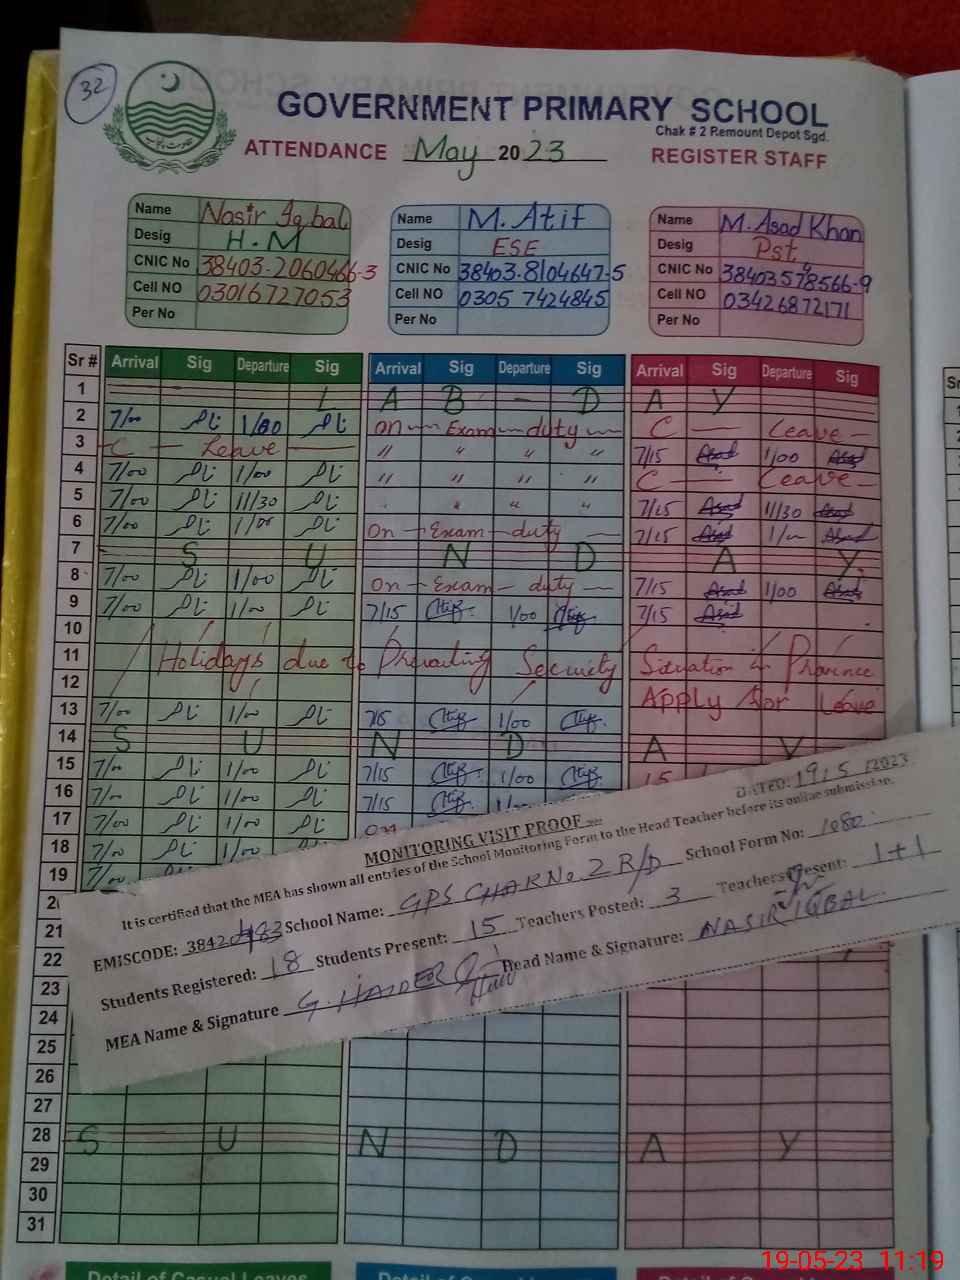 32
GOVERNMENT PRIMARY SCHOOL
Chak # 2 Remount Depot Sgd.
ATTENDANCE May 2023 REGISTER STAFF
Name Nasir Iqbal Name M. Atif Name M. Asad Khan
Desig H.M Desig ESE Desig Pst
CNIC No 38403-2060466-3 CNIC No 38403-8104647-5 CNIC No
Cell NO 03016727053 Cell NO 0305 7424845 Cell NO 03426872171
Per No Per No Per No
Sr # Arrival Sig Departure Sig Arrival Sig Departure Sig Arrival Sig Departure Sig
1 L A B - D A Y
2 7/00 1/00 on Exam duty C Leave
3 C Leave " " " " 7/15 Asad 1/00 Asad
4 7/00 1/00 " " " " C Leave
5 7/00 11/30 " " " 7/15 Asad 11/30 Asad
6 7/00 1/00 On Exam duty 7/15 Asad 1/00 Asad
7 S U N D A Y
8 7/00 1/00 On Exam duty 7/15 Asad 1/00 Asad
9 7/00 1/00 7/15 Atif 1/00 Atif 7/15 Asad
10
11 Holidays due to Prevailing Security Situation in Province
12 Apply for Leave
13 7/00 1/00 7/15 Atif 1/00 Atif
14 S U N D A Y
15 7/00 1/00 7/15 Atif 1/00 Atif 15
16 7/00 1/00 7/15 Atif
17 7/00 1/00 On
18 7/00 1/00
19 7/00
MONITORING VISIT PROOF
DATED: 19/5/2023
It is certified that the MEA has shown all entries of the School Monitoring Form to the Head Teacher before its online submission.
EMISCODE: School Name: GPS CHAK No. 2 R/D School Form No: 1080
Students Registered: 18 Students Present: 15 Teachers Posted: 3 Teachers Present: 1+1
MEA Name & Signature G. HAIDER Head Name & Signature: NASIR IQBAL
21
22
23
24
25
26
27
28 S U N D A Y
29
30
31
Detail of Casual Leaves
19-05-23 11:19